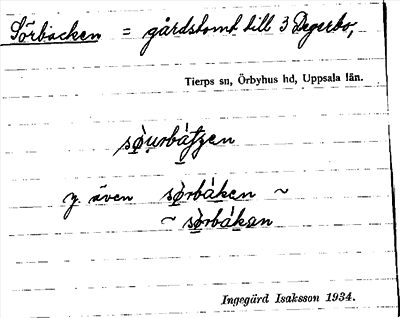 Sörbacken = gårdstomt till 3 Degerbo,
Tierps sn, Örbyhus hd, Uppsala län.
sǫ̀u̢rbátʃzen
y. även sörbáken ~
~ sörbákan
Ingegärd Isaksson 1934.